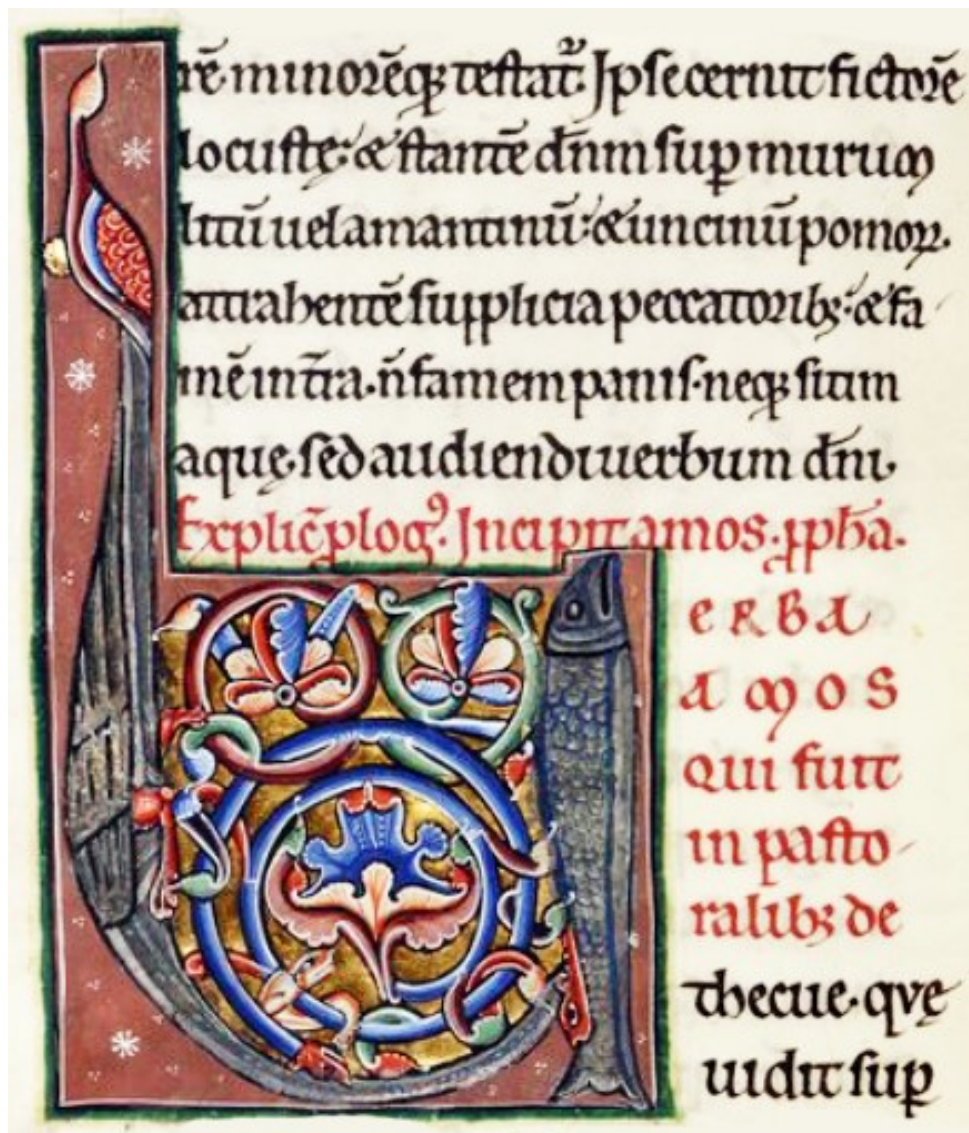 rē minorēq; testat᷑. Ipse cernit fictorē
locustę: & stantē dñm sup̱ murum
litū uel amantinū: & uncinū pomoꝝ.
attrahentē supplicia peccatorib;: & fa
mē in t̄ra. ñ famem panis. neq; sitim
aquę. sed audiendi uerbum dñi.
Explic̄ p̱logꝰ. Incipit amos. p̱ph̄a.
ERBA
AMOS
QUI fuit
in pasto
ralib; de
thecue. qvę
uidit sup̱